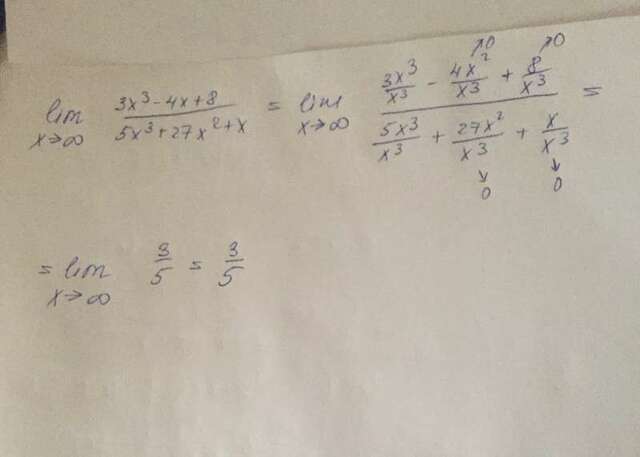 lim x→∞ (3x³ - 4x + 8)/(5x³ + 27x² + x) = lim x→∞ (3x³/x³ - 4x²/x³ →0 + 8/x³ →0)/(5x³/x³ + 27x²/x³ →0 + x/x³ →0) =
= lim x→∞ 3/5 = 3/5